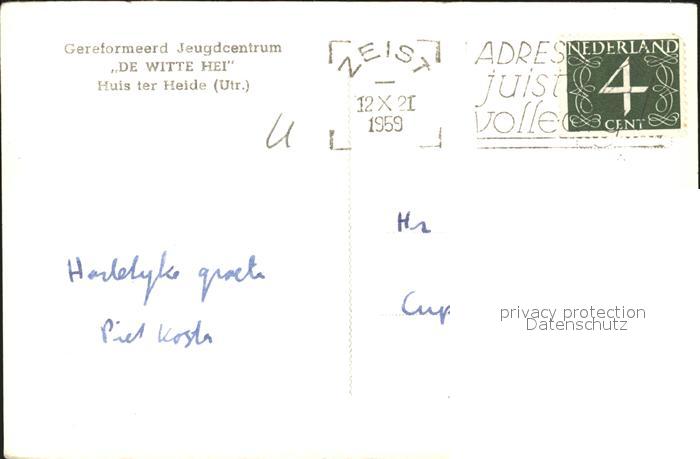 Gereformeerd Jeugdcentrum
„DE WITTE HEI"
Huis ter Heide (Utr.)
ZEIST
12 X 21
1959
ADRES
juist
volled
NEDERLAND
4
CENT
Hr
Cup
privacy protection
Datenschutz
Hartelyke groeten
Piet Koster